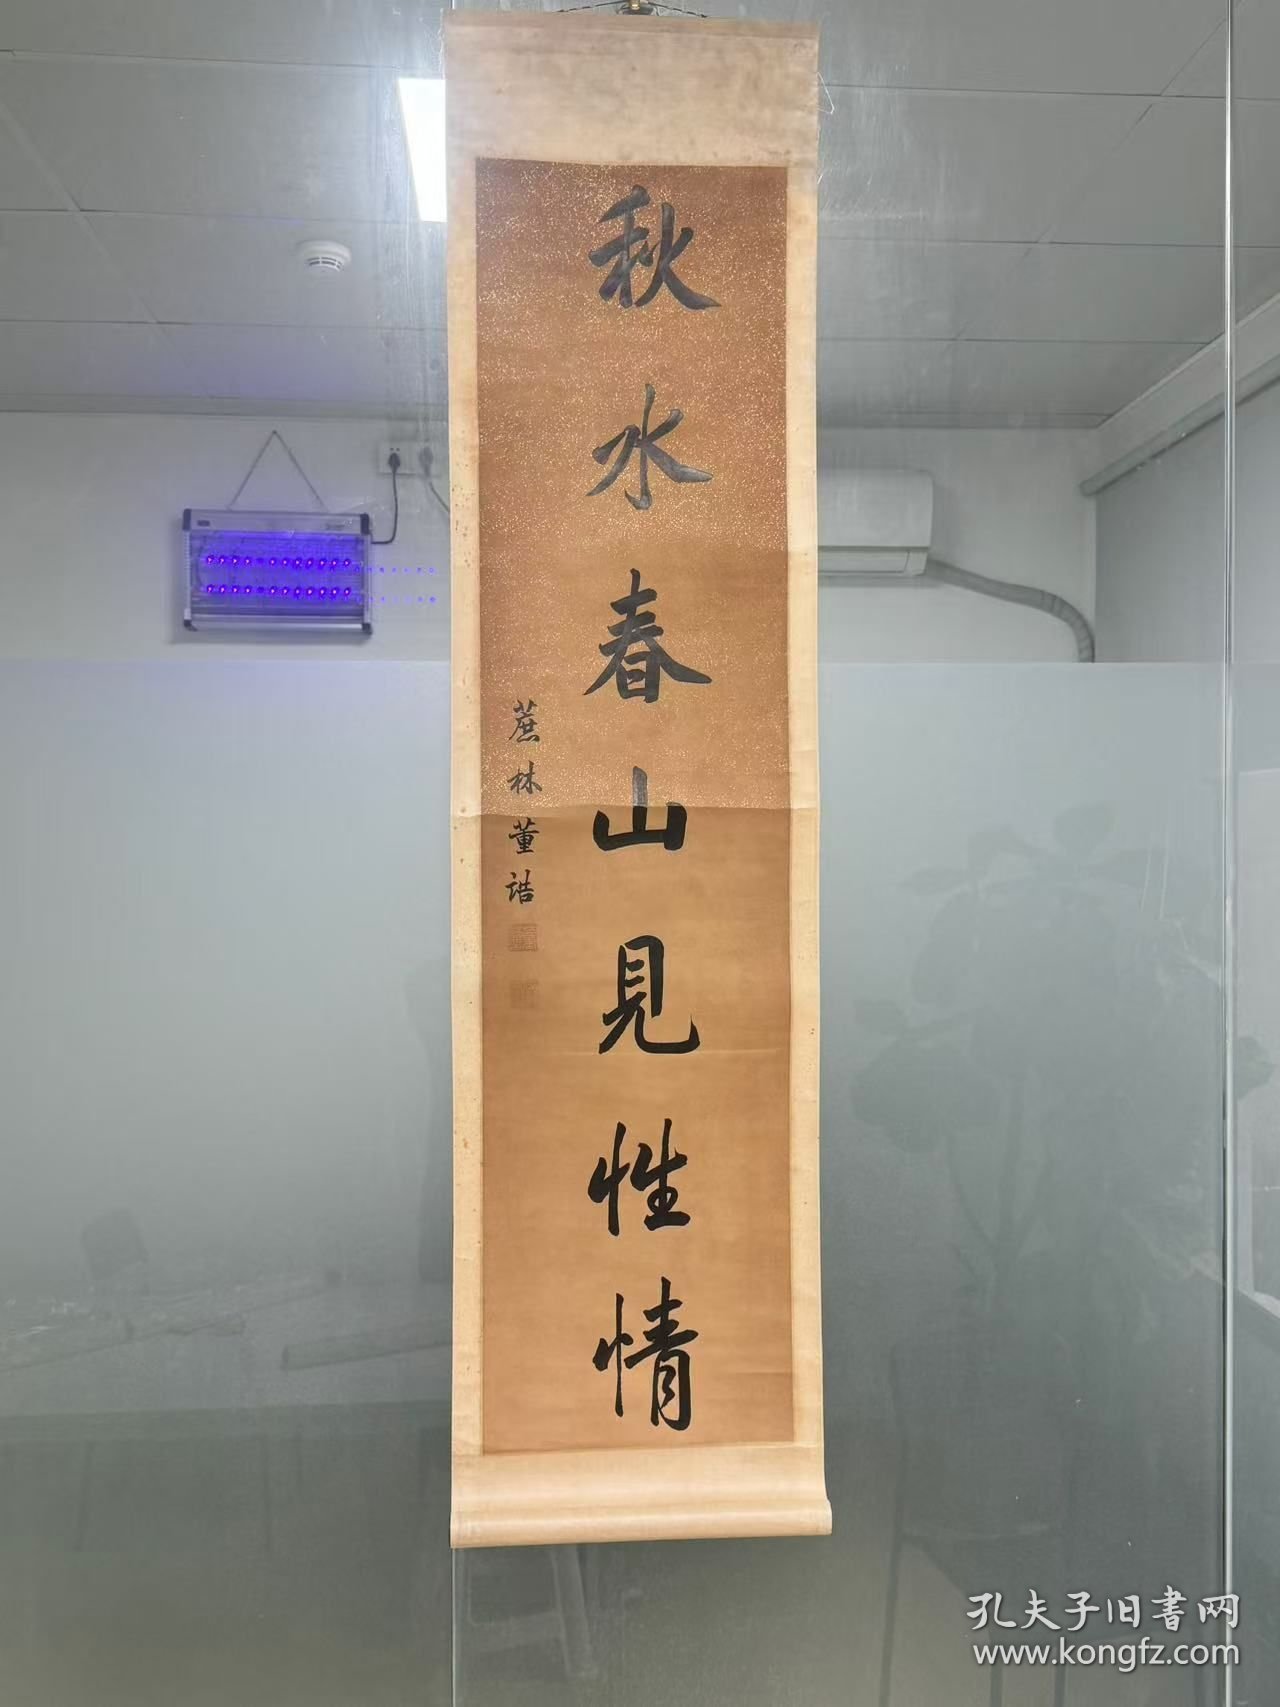 秋水春山見性情
蔗林董誥
孔夫子旧書网
www.kongfz.com